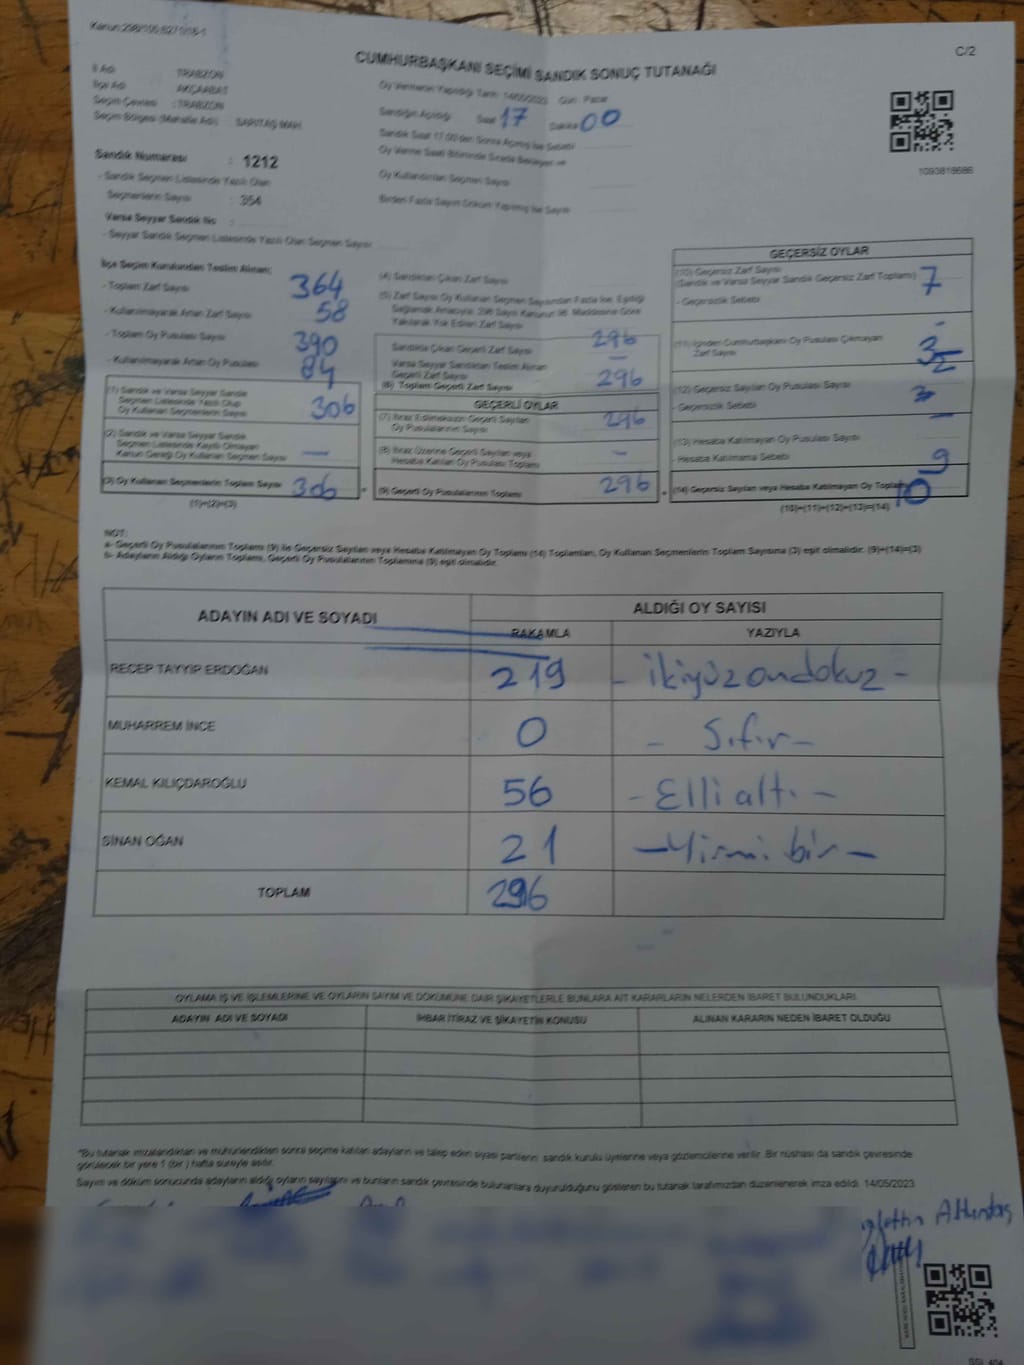 C/2
CUMHURBAŞKANI SEÇİMİ SANDIK SONUÇ TUTANAĞI
İl Adı : TRABZON
İlçe Adı : AKÇAABAT
Seçim Çevresi : TRABZON
Seçim Bölgesi (Mahalle Adı) : SARITAŞ MAH.
Sandık Numarası : 1212
- Sandık Seçmen Listesinde Yazılı Olan
Seçmenlerin Sayısı : 354
Varsa Seyyar Sandık No :
- Seyyar Sandık Seçmen Listesinde Yazılı Olan Seçmen Sayısı
Oy Vermenin Yapıldığı Tarih: 14/05/2023 Gün: Pazar
Sandığın Açıldığı Saat 17 Dakika 00
Sandık Saat 17.00'den Sonra Açılmış İse Sebebi
Oy Verme Saati Bitiminde Sırada Bekleyen ve
Oy Kullandırılan Seçmen Sayısı
Birden Fazla Sayım Döküm Yapılmış İse Sayısı
1093818686
İlçe Seçim Kurulundan Teslim Alınan;
- Toplam Zarf Sayısı 364
- Kullanılmayarak Artan Zarf Sayısı 58
- Toplam Oy Pusulası Sayısı 390
- Kullanılmayarak Artan Oy Pusulası 84
(1) Sandık ve Varsa Seyyar Sandık
Seçmen Listesinde Yazılı Olup
Oy Kullanan Seçmenlerin Sayısı 306
(2) Sandık ve Varsa Seyyar Sandık
Seçmen Listesinde Kayıtlı Olmayan
Kanun Gereği Oy Kullanan Seçmen Sayısı —
(3) Oy Kullanan Seçmenlerin Toplam Sayısı 306
(1)+(2)=(3)
(4) Sandıktan Çıkan Zarf Sayısı
(5) Zarf Sayısı Oy Kullanan Seçmen Sayısından Fazla İse, Eşitliği
Sağlamak Amacıyla, 298 Sayılı Kanunun 98. Maddesine Göre
Yakılarak Yok Edilen Zarf Sayısı
Sandıkta Çıkan Geçerli Zarf Sayısı 296
Varsa Seyyar Sandıktan Teslim Alınan
Geçerli Zarf Sayısı —
(6) Toplam Geçerli Zarf Sayısı 296
GEÇERLİ OYLAR
(7) İtiraz Edilmeksizin Geçerli Sayılan
Oy Pusulalarının Sayısı 296
(8) İtiraz Üzerine Geçerli Sayılan veya
Hesaba Katılan Oy Pusulası Toplamı -
(9) Geçerli Oy Pusulalarının Toplamı 296
GEÇERSİZ OYLAR
(10) Geçersiz Zarf Sayısı
(Sandık ve Varsa Seyyar Sandık Geçersiz Zarf Toplamı) 7
- Geçersizlik Sebebi
(11) İçinden Cumhurbaşkanı Oy Pusulası Çıkmayan
Zarf Sayısı
(12) Geçersiz Sayılan Oy Pusulası Sayısı
- Geçersizlik Sebebi
(13) Hesaba Katılmayan Oy Pusulası Sayısı
- Hesaba Katılmama Sebebi
(14) Geçersiz Sayılan veya Hesaba Katılmayan Oy Toplamı 10
(10)+(11)+(12)+(13)=(14)
NOT:
a- Geçerli Oy Pusulalarının Toplamı (9) ile Geçersiz Sayılan veya Hesaba Katılmayan Oy Toplamı (14) Toplamları, Oy Kullanan Seçmenlerin Toplam Sayısına (3) eşit olmalıdır. (9)+(14)=(3)
b- Adayların Aldığı Oyların Toplamı, Geçerli Oy Pusulalarının Toplamına (9) eşit olmalıdır.
ADAYIN ADI VE SOYADI ALDIĞI OY SAYISI
RAKAMLA YAZIYLA
RECEP TAYYİP ERDOĞAN 219 - ikiyüzondokuz -
MUHARREM İNCE 0 - Sıfır -
KEMAL KILIÇDAROĞLU 56 - Elli altı -
SİNAN OĞAN 21 - Yirmi bir -
TOPLAM 296
OYLAMA İŞ VE İŞLEMLERİNE VE OYLARIN SAYIM VE DÖKÜMÜNE DAİR ŞİKAYETLERLE BUNLARA AİT KARARLARIN NELERDEN İBARET BULUNDUKLARI
ADAYIN ADI VE SOYADI İHBAR İTİRAZ VE ŞİKAYETİN KONUSU ALINAN KARARIN NEDEN İBARET OLDUĞU
*Bu tutanak imzalandıktan ve mühürlendikten sonra seçime katılan adayların ve talep eden siyasi partilerin sandık kurulu üyelerine veya gözlemcilerine verilir. Bir nüshası da sandık çevresinde
görülecek bir yere 1 (bir) hafta süreyle asılır.
Sayım ve döküm sonucunda adayların aldığı oyların sayılarını ve bunların sandık çevresinde bulunanlara duyurulduğunu gösteren bu tutanak tarafımızdan düzenlenerek imza edildi. 14/05/2023